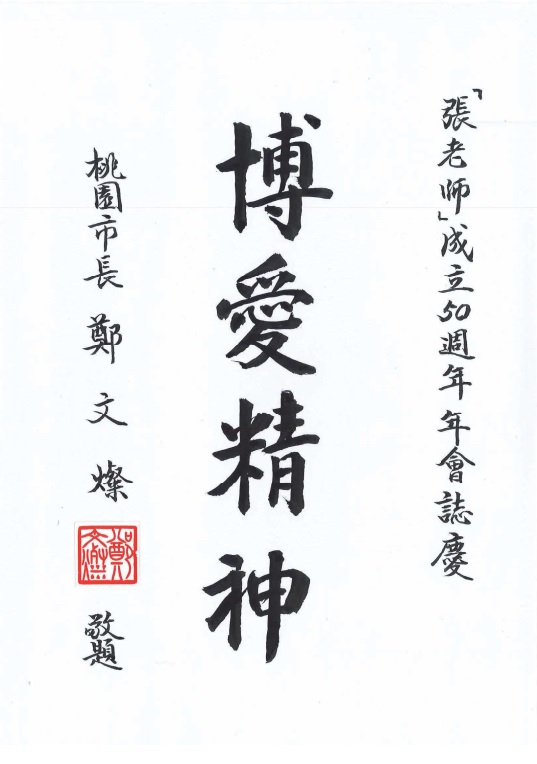 「張老師」成立50週年年會誌慶
博愛精神
桃園市長 鄭文燦
鄭文燦
敬題